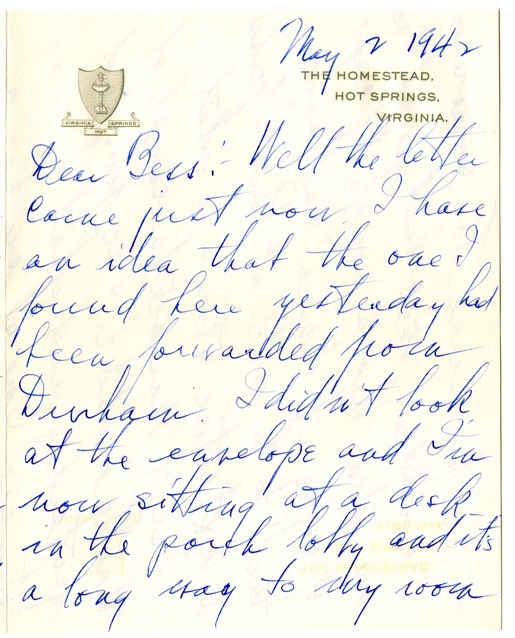 May 2 1942
THE HOMESTEAD.
HOT SPRINGS,
VIRGINIA.
VIRGINIA SPRINGS
HOT
Dear Bess:- Well the letter
came just now. I have
an idea that the one I
found here yesterday had
been forwarded from
Durham. I didn't look
at the envelope and I'm
now sitting at a desk
in the porch lobby and its
a long way to my room